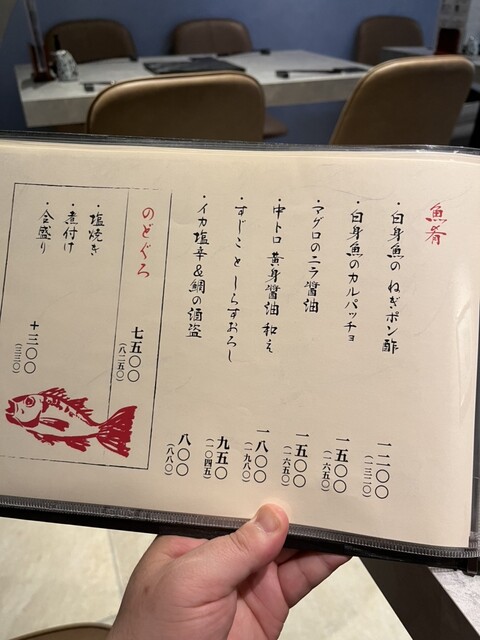 魚肴
・白身魚の ねぎポン酢 一二〇〇
(一三二〇)
・白身魚のカルパッチョ 一五〇〇
(一六五〇)
・マグロのニラ醤油 一五〇〇
(一六五〇)
・中トロ 黄身醤油和え 一八〇〇
(一九八〇)
・すじことしらすおろし 九五〇
(一〇四五)
・イカ塩辛&鯛の酒盗 八〇〇
(八八〇)
のどぐろ 七五〇〇
(八二五〇)
・塩焼き
・煮付け
・全盛り +三〇〇
(三三〇)